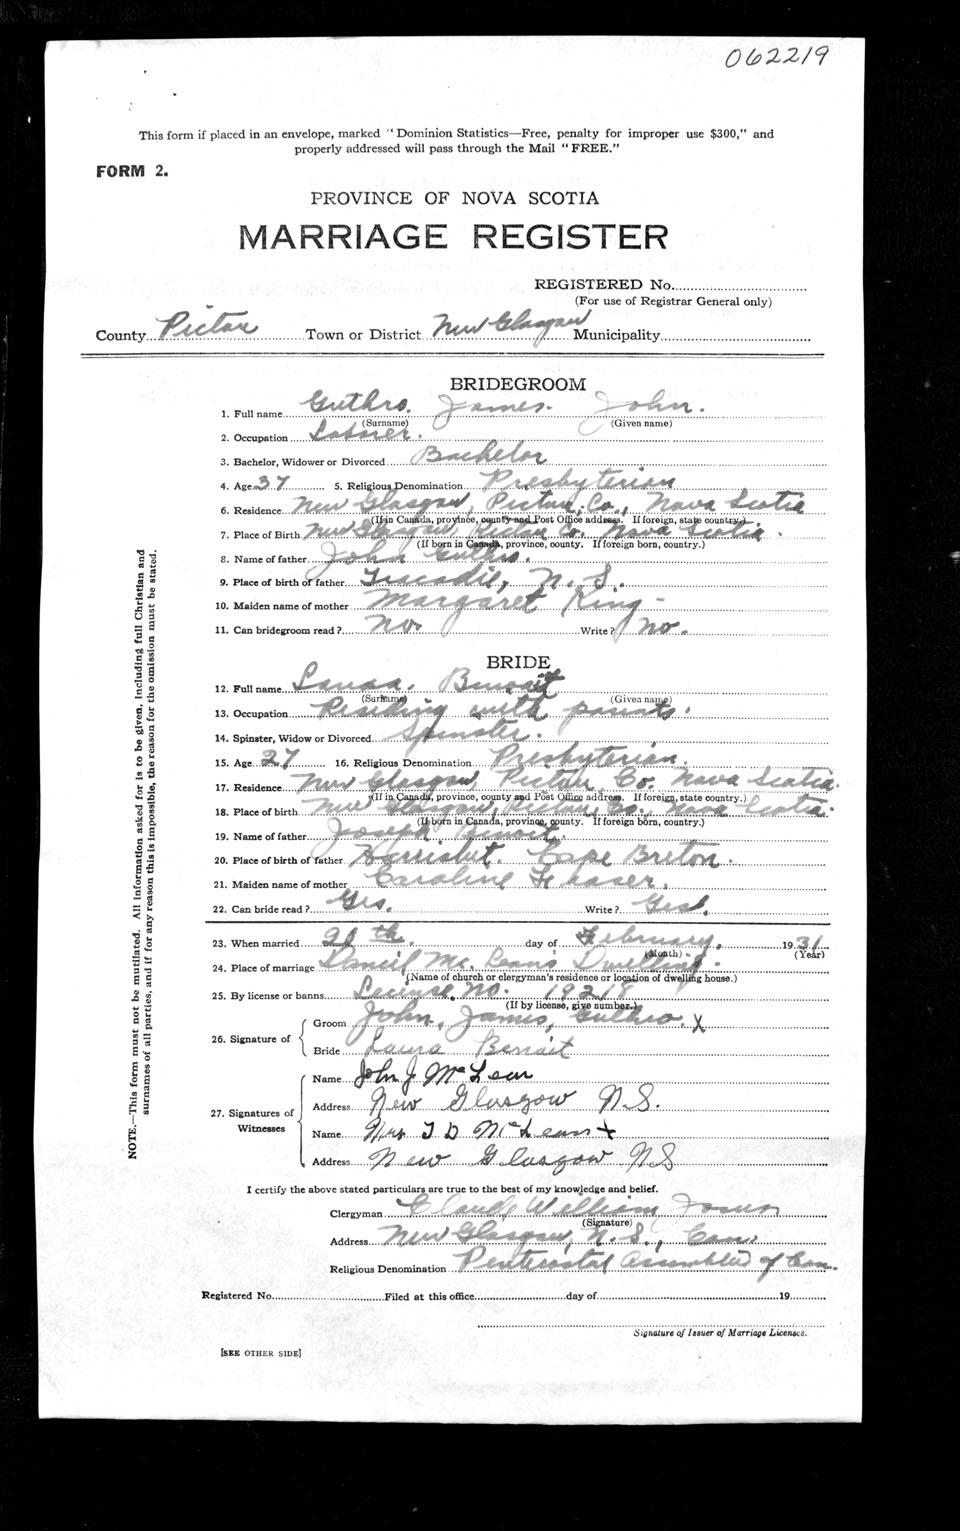 062219
This form if placed in an envelope, marked "Dominion Statistics—Free, penalty for improper use $300," and
properly addressed will pass through the Mail "FREE."
FORM 2.
PROVINCE OF NOVA SCOTIA
MARRIAGE REGISTER
REGISTERED No.
(For use of Registrar General only)
County Pictou Town or District New Glasgow Municipality
BRIDEGROOM
1. Full name Guthro. James. John.
(Surname) (Given name)
2. Occupation Laborer.
3. Bachelor, Widower or Divorced Bachelor
4. Age 37 5. Religious Denomination Presbyterian
6. Residence New Glasgow, Pictou, Co., Nova Scotia
(If in Canada, province, county and Post Office address. If foreign, state country.)
7. Place of Birth New Glasgow, Pictou Co. Nova Scotia.
(If born in Canada, province, county. If foreign born, country.)
8. Name of father John Guthro.
9. Place of birth of father Tracadie, N. S.
10. Maiden name of mother Margaret King -
11. Can bridegroom read? no. Write? no.
BRIDE
12. Full name Laura. Benoit
(Surname) (Given name)
13. Occupation Residing with parents.
14. Spinster, Widow or Divorced Spinster.
15. Age 27 16. Religious Denomination Presbyterian.
17. Residence New Glasgow, Pictou, Co. Nova Scotia.
(If in Canada, province, county and Post Office address. If foreign, state country.)
18. Place of birth New Glasgow, Pictou, Co., Nova Scotia.
(If born in Canada, province, county. If foreign born, country.)
19. Name of father Joseph Benoit.
20. Place of birth of father Cape Breton.
21. Maiden name of mother Caroline
22. Can bride read? Yes. Write? Yes.
23. When married th. day of February. 1931
(Month) (Year)
24. Place of marriage Daniel Mc. Dwelling.
(Name of church or clergyman's residence or location of dwelling house.)
25. By license or banns License. No. 19218
(If by license, give number.)
26. Signature of
Groom John, James, Guthro. X
Bride Laura Benoit
27. Signatures of Witnesses
Name John J McLean
Address New Glasgow N.S.
Name Mrs J D McLean +
Address New Glasgow NS
I certify the above stated particulars are true to the best of my knowledge and belief.
Clergyman Claude William
(Signature)
Address New Glasgow, N. S., Can.
Religious Denomination Pentecostal Assemblies of Can.
Registered No. Filed at this office day of 19
Signature of Issuer of Marriage Licenses.
[SEE OTHER SIDE]
NOTE.—This form must not be mutilated. All information asked for is to be given, including full Christian and
surnames of all parties, and if for any reason this is impossible, the reason for the omission must be stated.